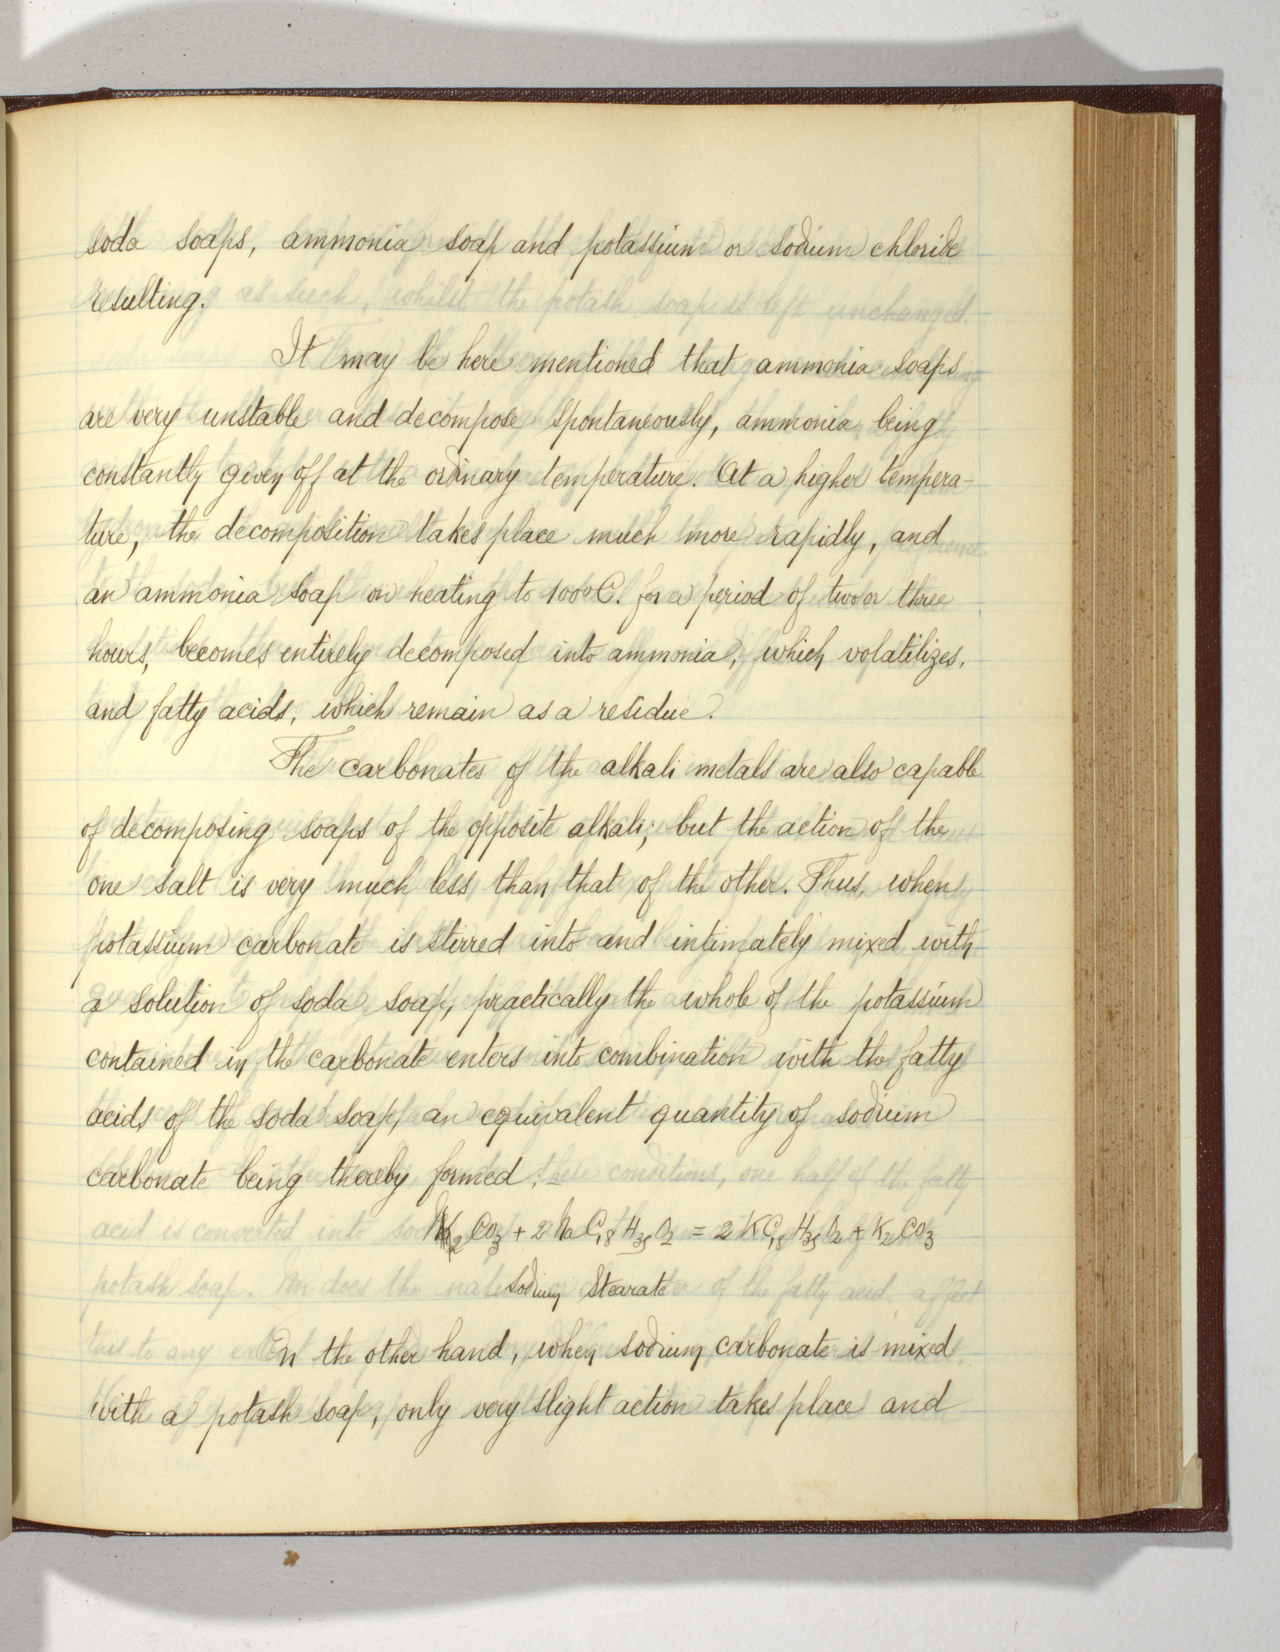 soda soaps, ammonia soap and potassium or sodium chloride
resulting.
It may be here mentioned that ammonia soaps
are very unstable and decompose spontaneously, ammonia being
constantly given off at the ordinary temperature. At a higher tempera-
ture, the decomposition takes place much more rapidly, and
an ammonia soap on heating to 100°C. for a period of two or three
hours, becomes entirely decomposed into ammonia, which volatilizes,
and fatty acids, which remain as a residue.
The carbonates of the alkali metals are also capable
of decomposing soaps of the opposite alkali; but the action of the
one salt is very much less than that of the other. Thus, when
potassium carbonate is stirred into and intimately mixed with
a solution of soda soap, practically the whole of the potassium
contained in the carbonate enters into combination with the fatty
acids of the soda soap, an equivalent quantity of sodium
carbonate being thereby formed:—
K₂CO₃ + 2 NaC₁₈H₃₅O₂ = 2 KC₁₈H₃₅O₂ + K₂CO₃
Sodium Stearate
On the other hand, when sodium carbonate is mixed
with a potash soap, only very slight action takes place and